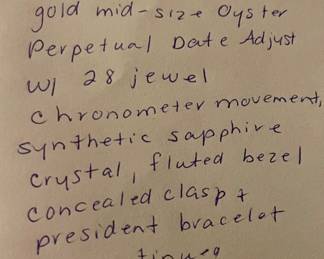 gold mid-size Oyster
Perpetual Date Adjust
w/ 28 jewel
chronometer movement,
synthetic sapphire
crystal, fluted bezel
concealed clasp +
president bracelet